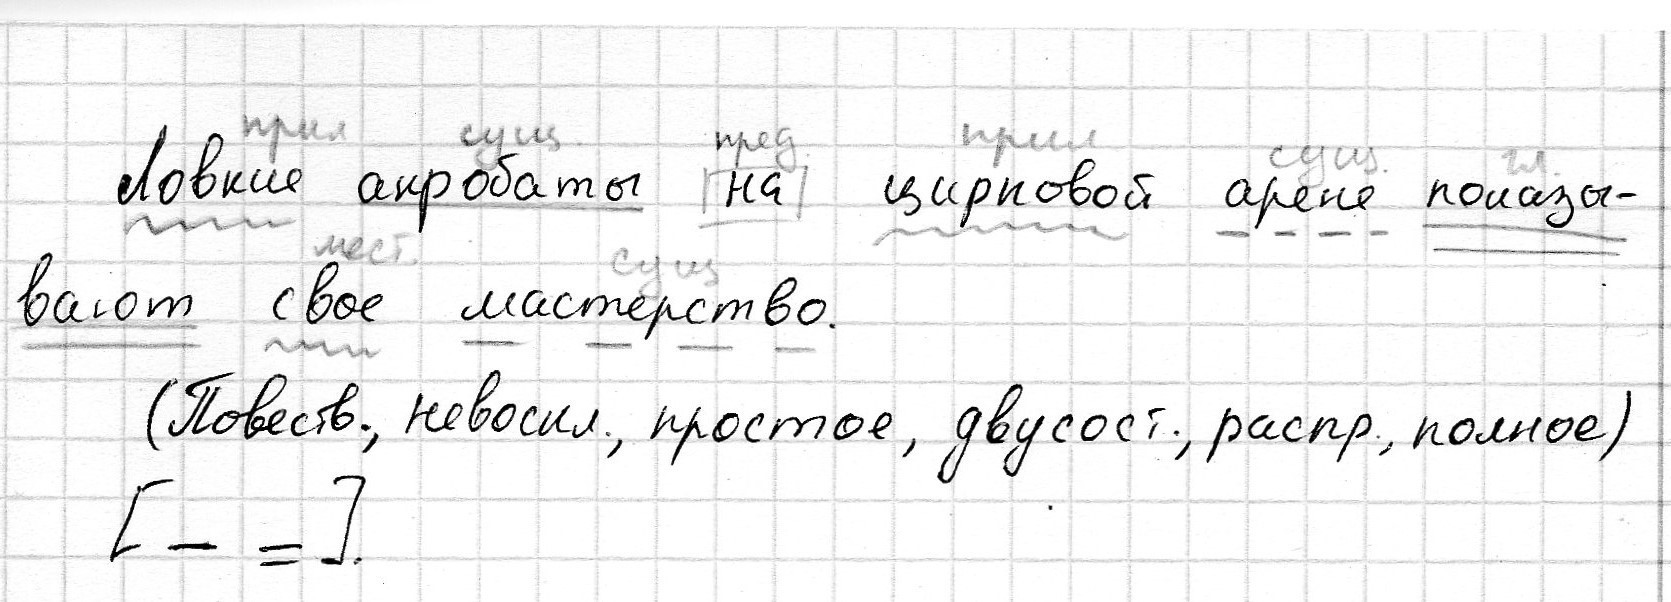 прил сущ. пред. прил сущ. гл.
Ловкие акробаты |на| цирковой арене показы-
мест. сущ
вают свое мастерство.
(Повеств., невоскл., простое, двусост., распр., полное)
[ — = ].